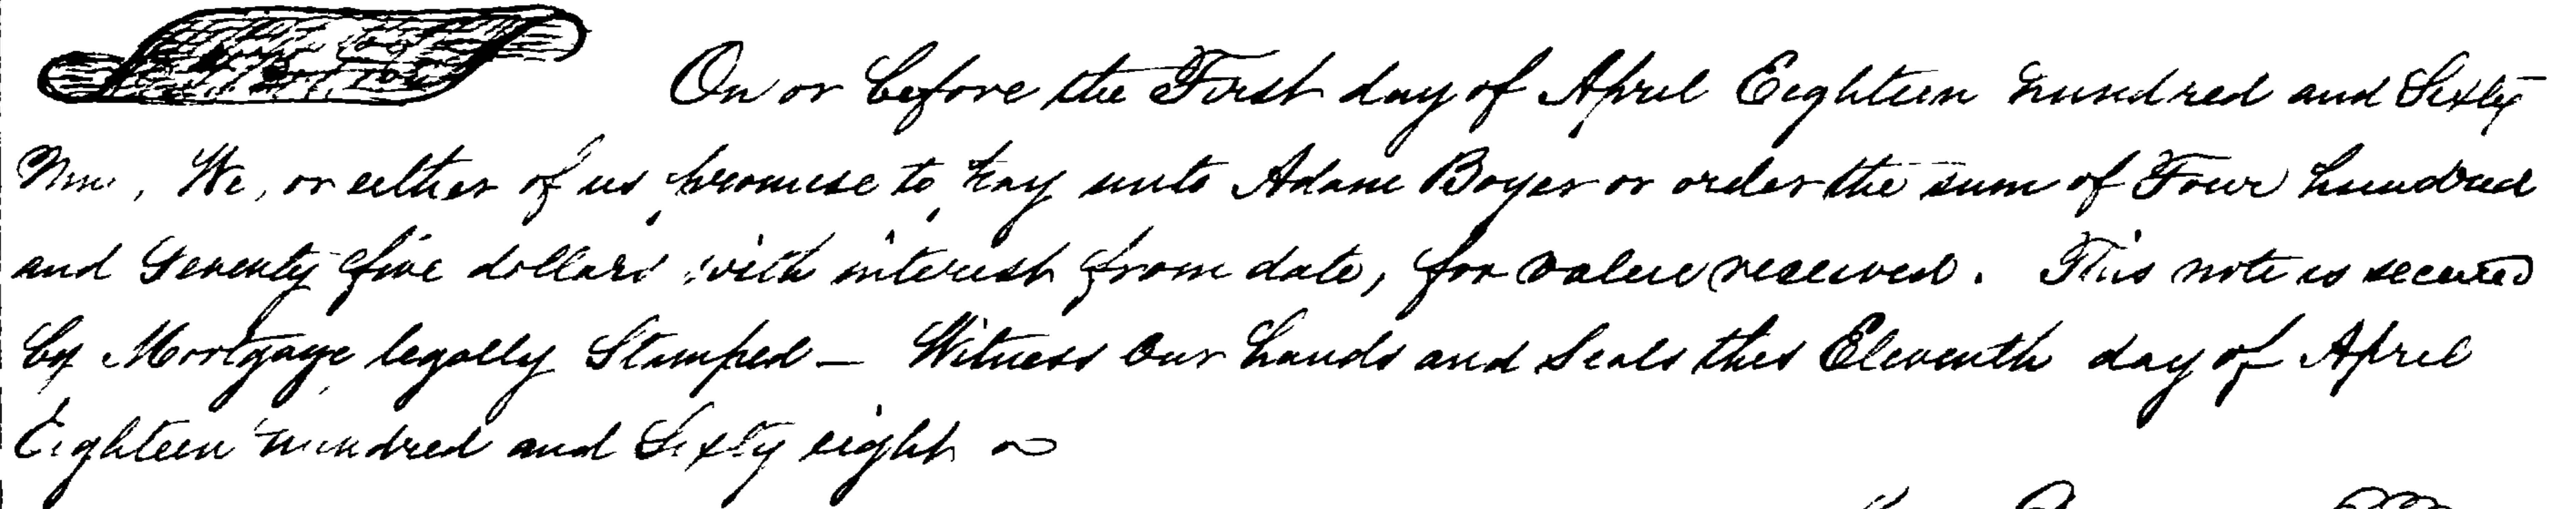 On or before the First day of April Eighteen hundred and Sixty
Nine, We, or either of us promise to pay unto Adam Boyer or order the sum of Four hundred
and Seventy five dollars with interest from date, for value received. This note is secured
by Mortgage legally Stamped — Witness our hands and Seals this Eleventh day of April
Eighteen hundred and Sixty eight